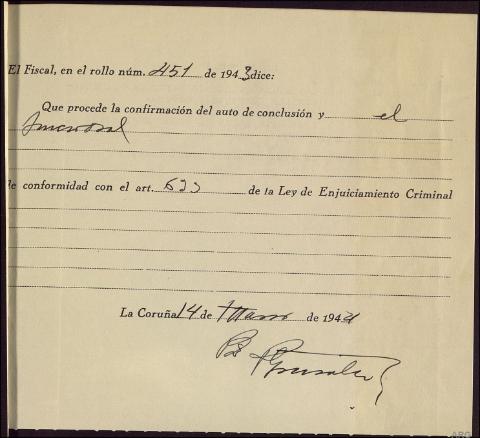 El Fiscal, en el rollo núm. 451 de 1943 dice:
Que procede la confirmación del auto de conclusión y el
de conformidad con el art. 633 de la Ley de Enjuiciamiento Criminal
La Coruña 14 de Marzo de 1944
ARG